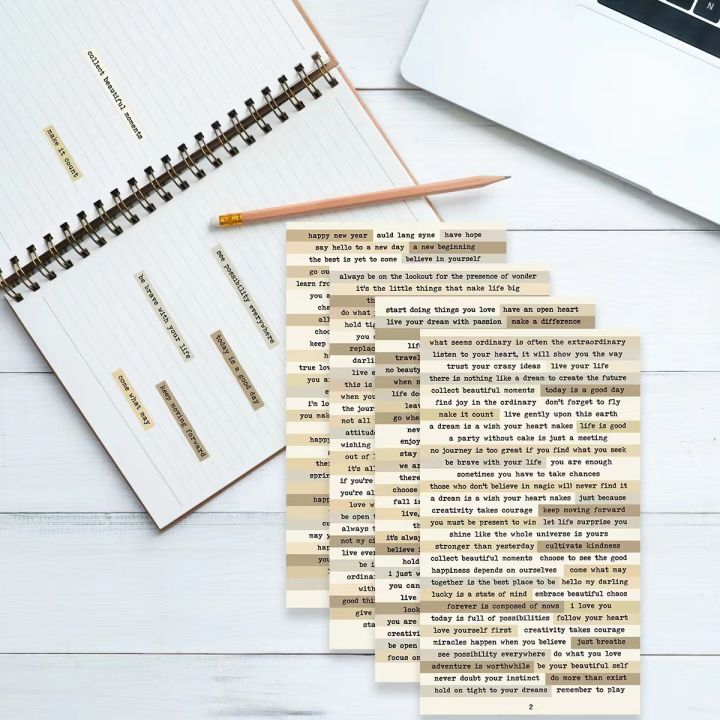 collect beautiful moments
make it count
see possibility everywhere
be brave with your life
today is a good day
come what may
keep moving forward
happy new year auld lang syne have hope
say hello to a new day a new beginning
the best is yet to come believe in yourself
go ou
learn from
you m
cha
all
choo
keep
ha
true lov
you ar
i'm lo
you mak
happy
s
ther
sprin
happ
cu
may
hap
you
always be on the lookout for the presence of wonder
it's the little things that make life big
th
do what
hold tig
you
replac
darli
live e
this is
when you
the jour
not all
attitud
wishing
out of l
it's all
if you're
you're al
love w
be open t
always t
not my ci
live ever
be i
ordina
with
good thi
give
sta
start doing things you love have an open heart
live your dream with passion make a difference
life
travel
no beauty
when n
life do
leav
go whe
nev
enjoy
stay
we ar
there
choose
fall in
live,
th
it's alway
believe
hold
i just w
you can
live
look
you are
creativi
be open
focus on
what seems ordinary is often the extraordinary
listen to your heart, it will show you the way
trust your crazy ideas live your life
there is nothing like a dream to create the future
collect beautiful moments today is a good day
find joy in the ordinary don't forget to fly
make it count live gently upon this earth
a dream is a wish your heart makes life is good
a party without cake is just a meeting
no journey is too great if you find what you seek
be brave with your life you are enough
sometimes you have to take chances
those who don't believe in magic will never find it
a dream is a wish your heart makes just because
creativity takes courage keep moving forward
you must be present to win let life surprise you
shine like the whole universe is yours
stronger than yesterday cultivate kindness
collect beautiful moments choose to see the good
happiness depends on ourselves come what may
together is the best place to be hello my darling
lucky is a state of mind embrace beautiful chaos
forever is conposed of nows i love you
today is full of possibilities follow your heart
love yourself first creativity takes courage
miracles happen when you believe just breathe
see possibility everywhere do what you love
adventure is worthwhile be your beautiful self
never doubt your instinct do more than exist
hold on tight to your dreams remember to play
2